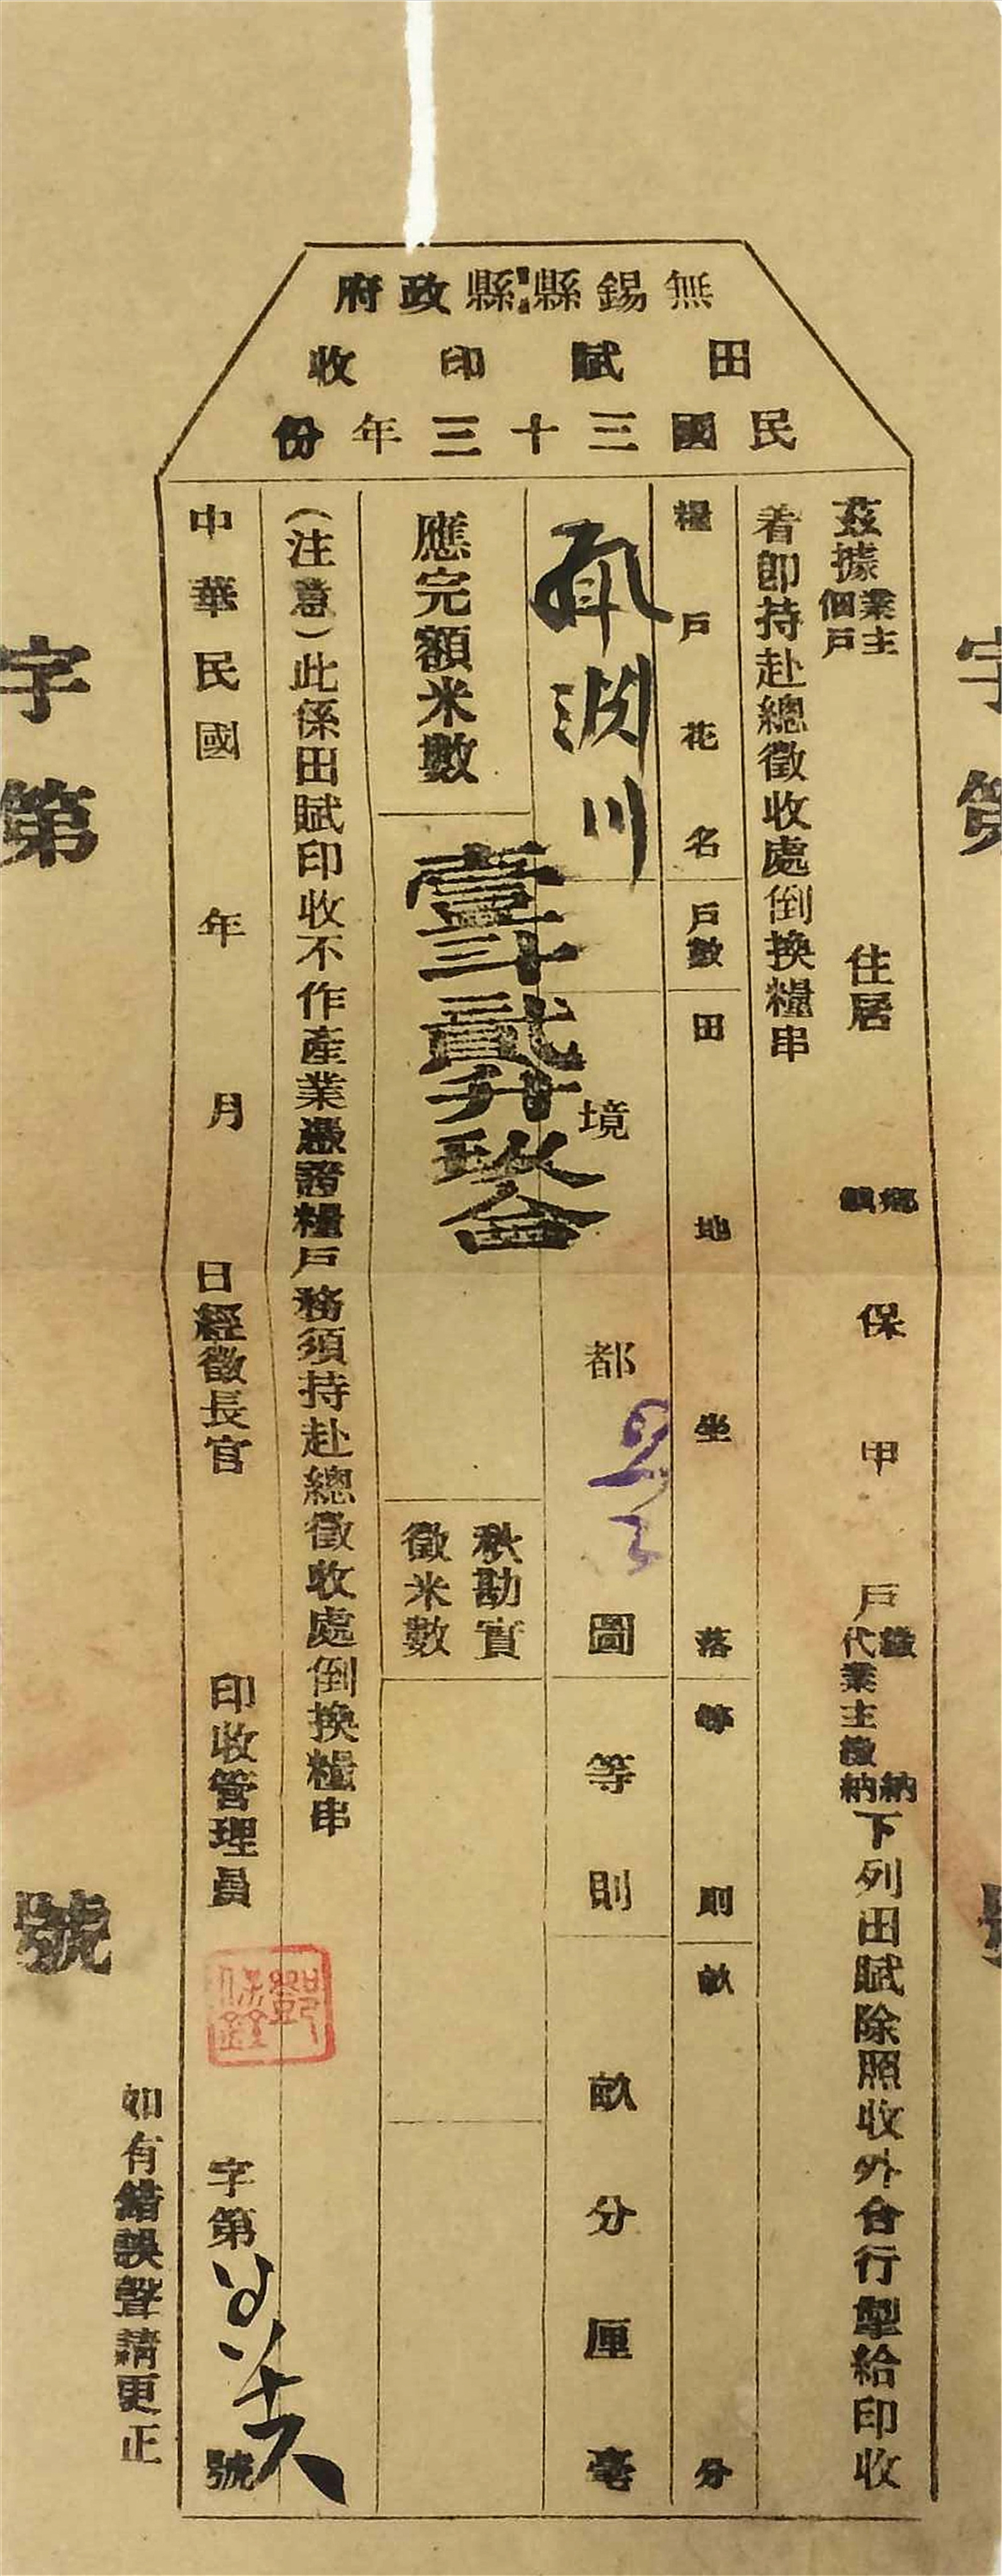 無錫縣縣政府
田賦印收
民國三十三年份
茲據業主佃戶 住居 鄉鎮 保 甲 戶繳納代業主繳納下列田賦除照收外合行掣給印收
着卽持赴總徵收處倒換糧串
糧戶花名 戶數 田地坐落 等則 畝分
川 境 都 圖 等則 畝分厘毫
應完額米數 壹斗貳升玖合
秋勘實徵米數
(注意)此係田賦印收不作產業憑證糧戶務須持赴總徵收處倒換糧串
中華民國 年 月 日經徵長官 印收管理員 字第 號
如有錯誤聲請更正
字第 號
字第 號